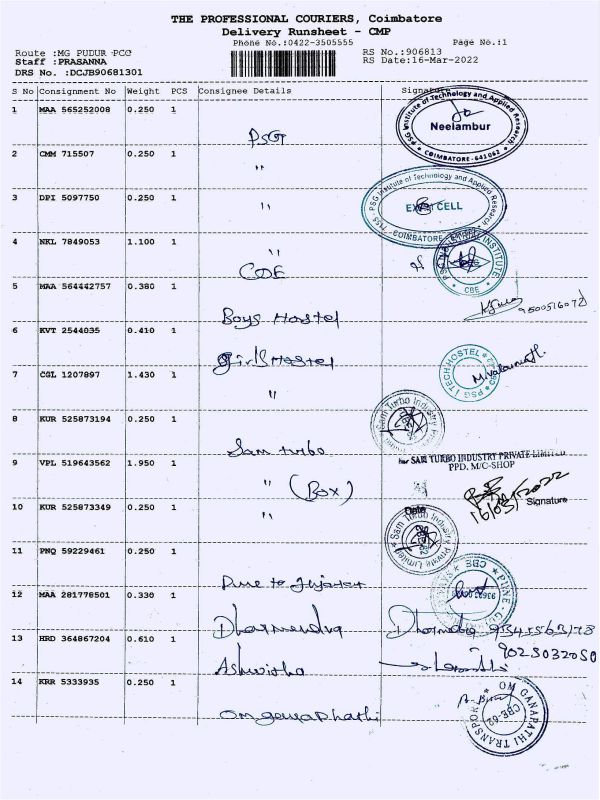 THE PROFESSIONAL COURIERS, Coimbatore
Delivery Runsheet - CMP
Phone No.:0422-3505555
Page No.:1
Route :MG PUDUR-PCC
Staff :PRASANNA
DRS No. :DCJB90681301
RS No.:906813
RS Date:16-Mar-2022
S No Consignment No Weight PCS Consignee Details Signature
1 MAA 565252008 0.250 1
PSG
PSG Institute of Technology and Applied Research
Neelambur
COIMBATORE-641062
2 CMM 715507 0.250 1
"
3 DPI 5097750 0.250 1
"
PSG Institute of Technology and Applied Research
CELL
COIMBATORE
4 NKL 7849053 1.100 1
"
COE
INSTITUTE
CBE
5 MAA 564442757 0.380 1
Boys Hostel
6 KVT 2544035 0.410 1
Girls Hostel
7 CGL 1207897 1.430 1
"
PSG I TECH HOSTEL
8 KUR 525873194 0.250 1
Sam turbo
Sam Turbo Industry Private
9 VPL 519643562 1.950 1
" (Box)
for SAM TURBO INDUSTRY PRIVATE LIMITED
PPD. M/C-SHOP
16/03/2022
Signature
10 KUR 525873349 0.250 1
"
Date
Sam Turbo Industry Private Limited
11 PNQ 59229461 0.250 1
Pune to Gujarat
12 MAA 281778501 0.330 1
Dharmendra
CBE
PUNE
13 HRD 364867204 0.610 1
Ashwitha
9025032050
14 KRR 5333935 0.250 1
Om ganaphathi
OM GANAPATHI TRANSPORT
CBE-62